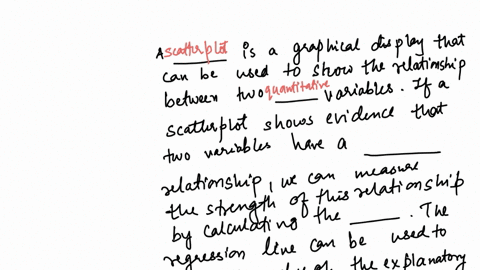 A scatterplot is a graphical display that
can be used to show the relationship
between two quantitative variables. If a
scatterplot shows evidence that
two variables have a ______
relationship, we can measure
the strength of this relationship
by calculating the ____. The
regression line can be used to
the explanatory